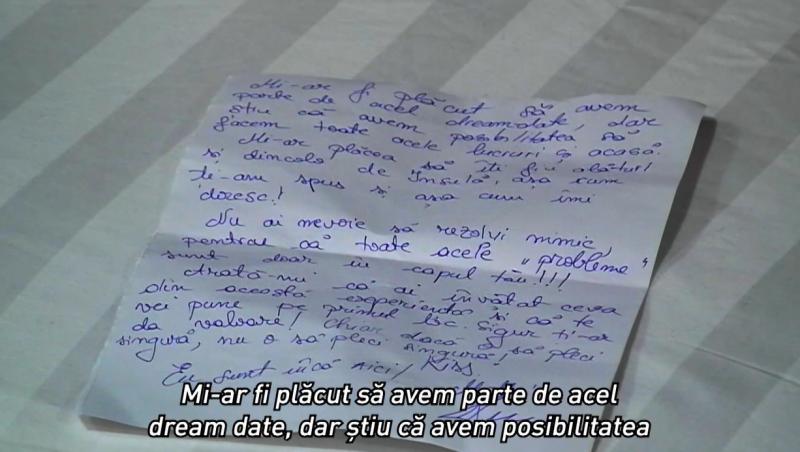 Mi-ar fi plăcut să avem
parte de acel dreamdate, dar
știu că avem posibilitatea să
facem toate acele lucruri și acasă.
Mi-ar plăcea să îți fiu alături
și dincolo de Insulă, așa cum
ți-am spus și așa cum îmi
doresc!
Nu ai nevoie să rezolvi nimic,
pentru că toate acele "probleme"
sunt doar în capul tău!!!
Arată-mi că ai învățat ceva
din această experiență și că te
vei pune pe primul loc. Sigur ți-ar
da valoare! Chiar dacă o să pleci
singură, nu o să pleci singură!
Eu sunt încă aici! Kiss
Mi-ar fi plăcut să avem parte de acel
dream date, dar știu că avem posibilitatea